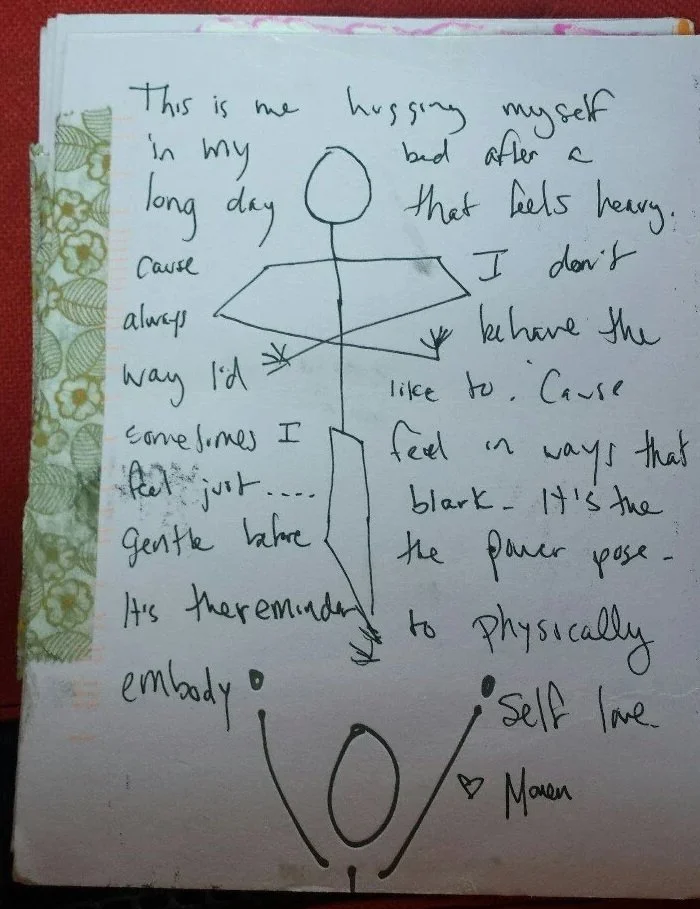 This is me hugging myself
in my bed after a
long day that feels heavy.
Cause I don't
always behave the
way I'd like to. 'Cause
sometimes I feel in ways that
feel just.... blark - It's the
gentle before the power pose -
It's the reminder to physically
embody self love.
♡ Maren